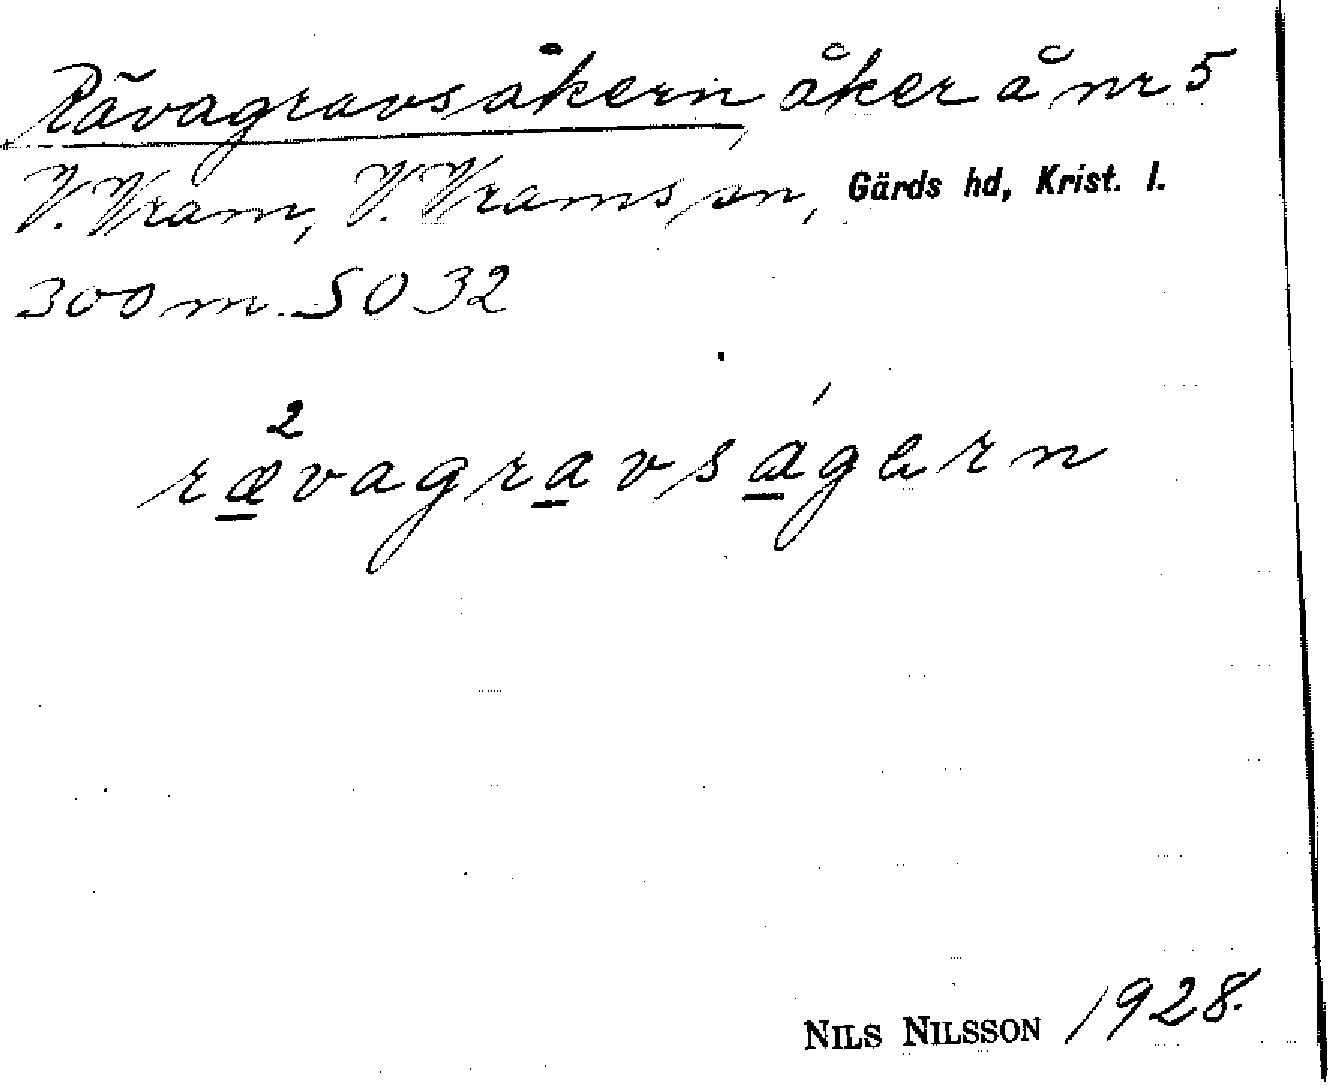 Rävagravsåkern, åker å nr 5
V. Vram, V. Vrams sn, Gärds hd, Krist. l.
300 m. SO 32
rævagravságern
NILS NILSSON 1928.